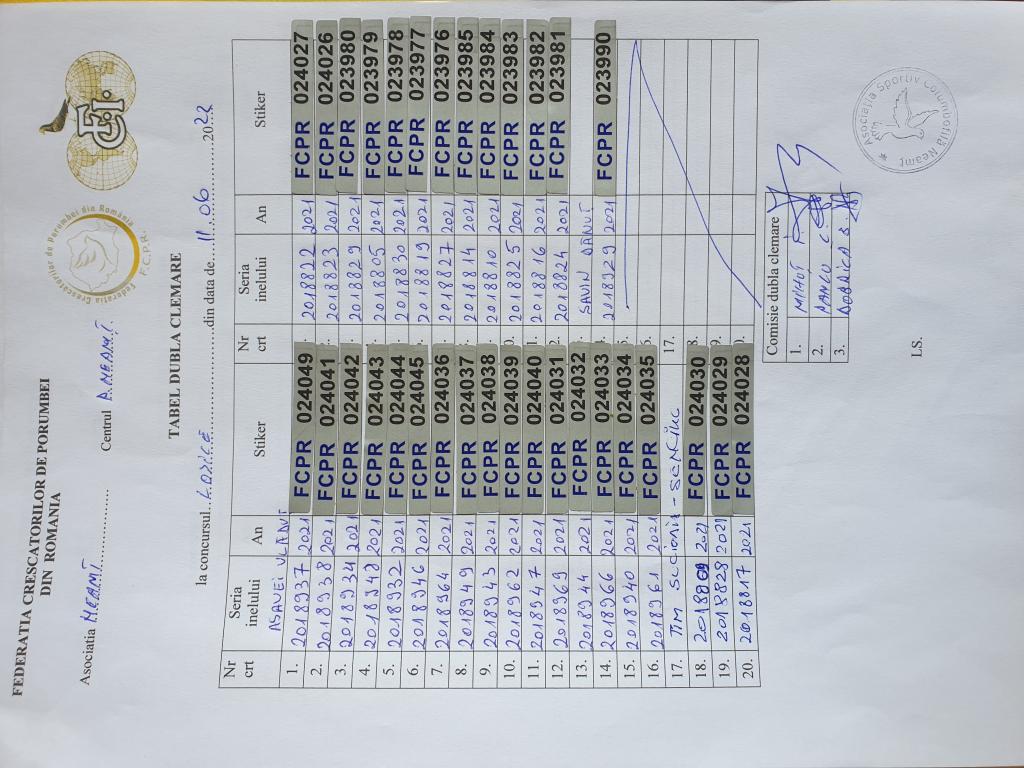 FEDERATIA CRESCATORILOR DE PORUMBEI
DIN ROMANIA
Asociatia NEAMT Centrul P. NEAMT
Federatia Crescatorilor de Porumbei din România
F.C.P.R.
TABEL DUBLA CLEMARE
la concursul LOZICE din data de 11.06 2022
Nr crt Seria inelului An Stiker Nr crt Seria inelului An Stiker
ASAVEI VLADUT
1. 2018937 2021 FCPR 024049 2018822 2021 FCPR 024027
2. 2018938 2021 FCPR 024041 2018823 2021 FCPR 024026
3. 2018934 2021 FCPR 024042 2018829 2021 FCPR 023980
4. 2018948 2021 FCPR 024043 2018805 2021 FCPR 023979
5. 2018932 2021 FCPR 024044 2018830 2021 FCPR 023978
6. 2018946 2021 FCPR 024045 2018819 2021 FCPR 023977
7. 2018964 2021 FCPR 024036 2018827 2021 FCPR 023976
8. 2018949 2021 FCPR 024037 2018814 2021 FCPR 023985
9. 2018943 2021 FCPR 024038 2018810 2021 FCPR 023984
10. 2018962 2021 FCPR 024039 2018825 2021 FCPR 023983
11. 2018947 2021 FCPR 024040 2018816 2021 FCPR 023982
12. 2018969 2021 FCPR 024031 2018824 2021 FCPR 023981
13. 2018944 2021 FCPR 024032 SAVIN DANUT
14. 2018966 2021 FCPR 024033 2018929 2021 FCPR 023990
15. 2018940 2021 FCPR 024034
16. 2018961 2021 FCPR 024035
17. TIM - SENCIUC 17.
18. 2018809 2021 FCPR 024030
19. 2018828 2021 FCPR 024029
20. 2018817 2021 FCPR 024028
Comisie dubla clemare
1. MIHUT
2. C.
3. DOBRICA B.
LS.
* Asociația Sportiv Columbofilă Neamț